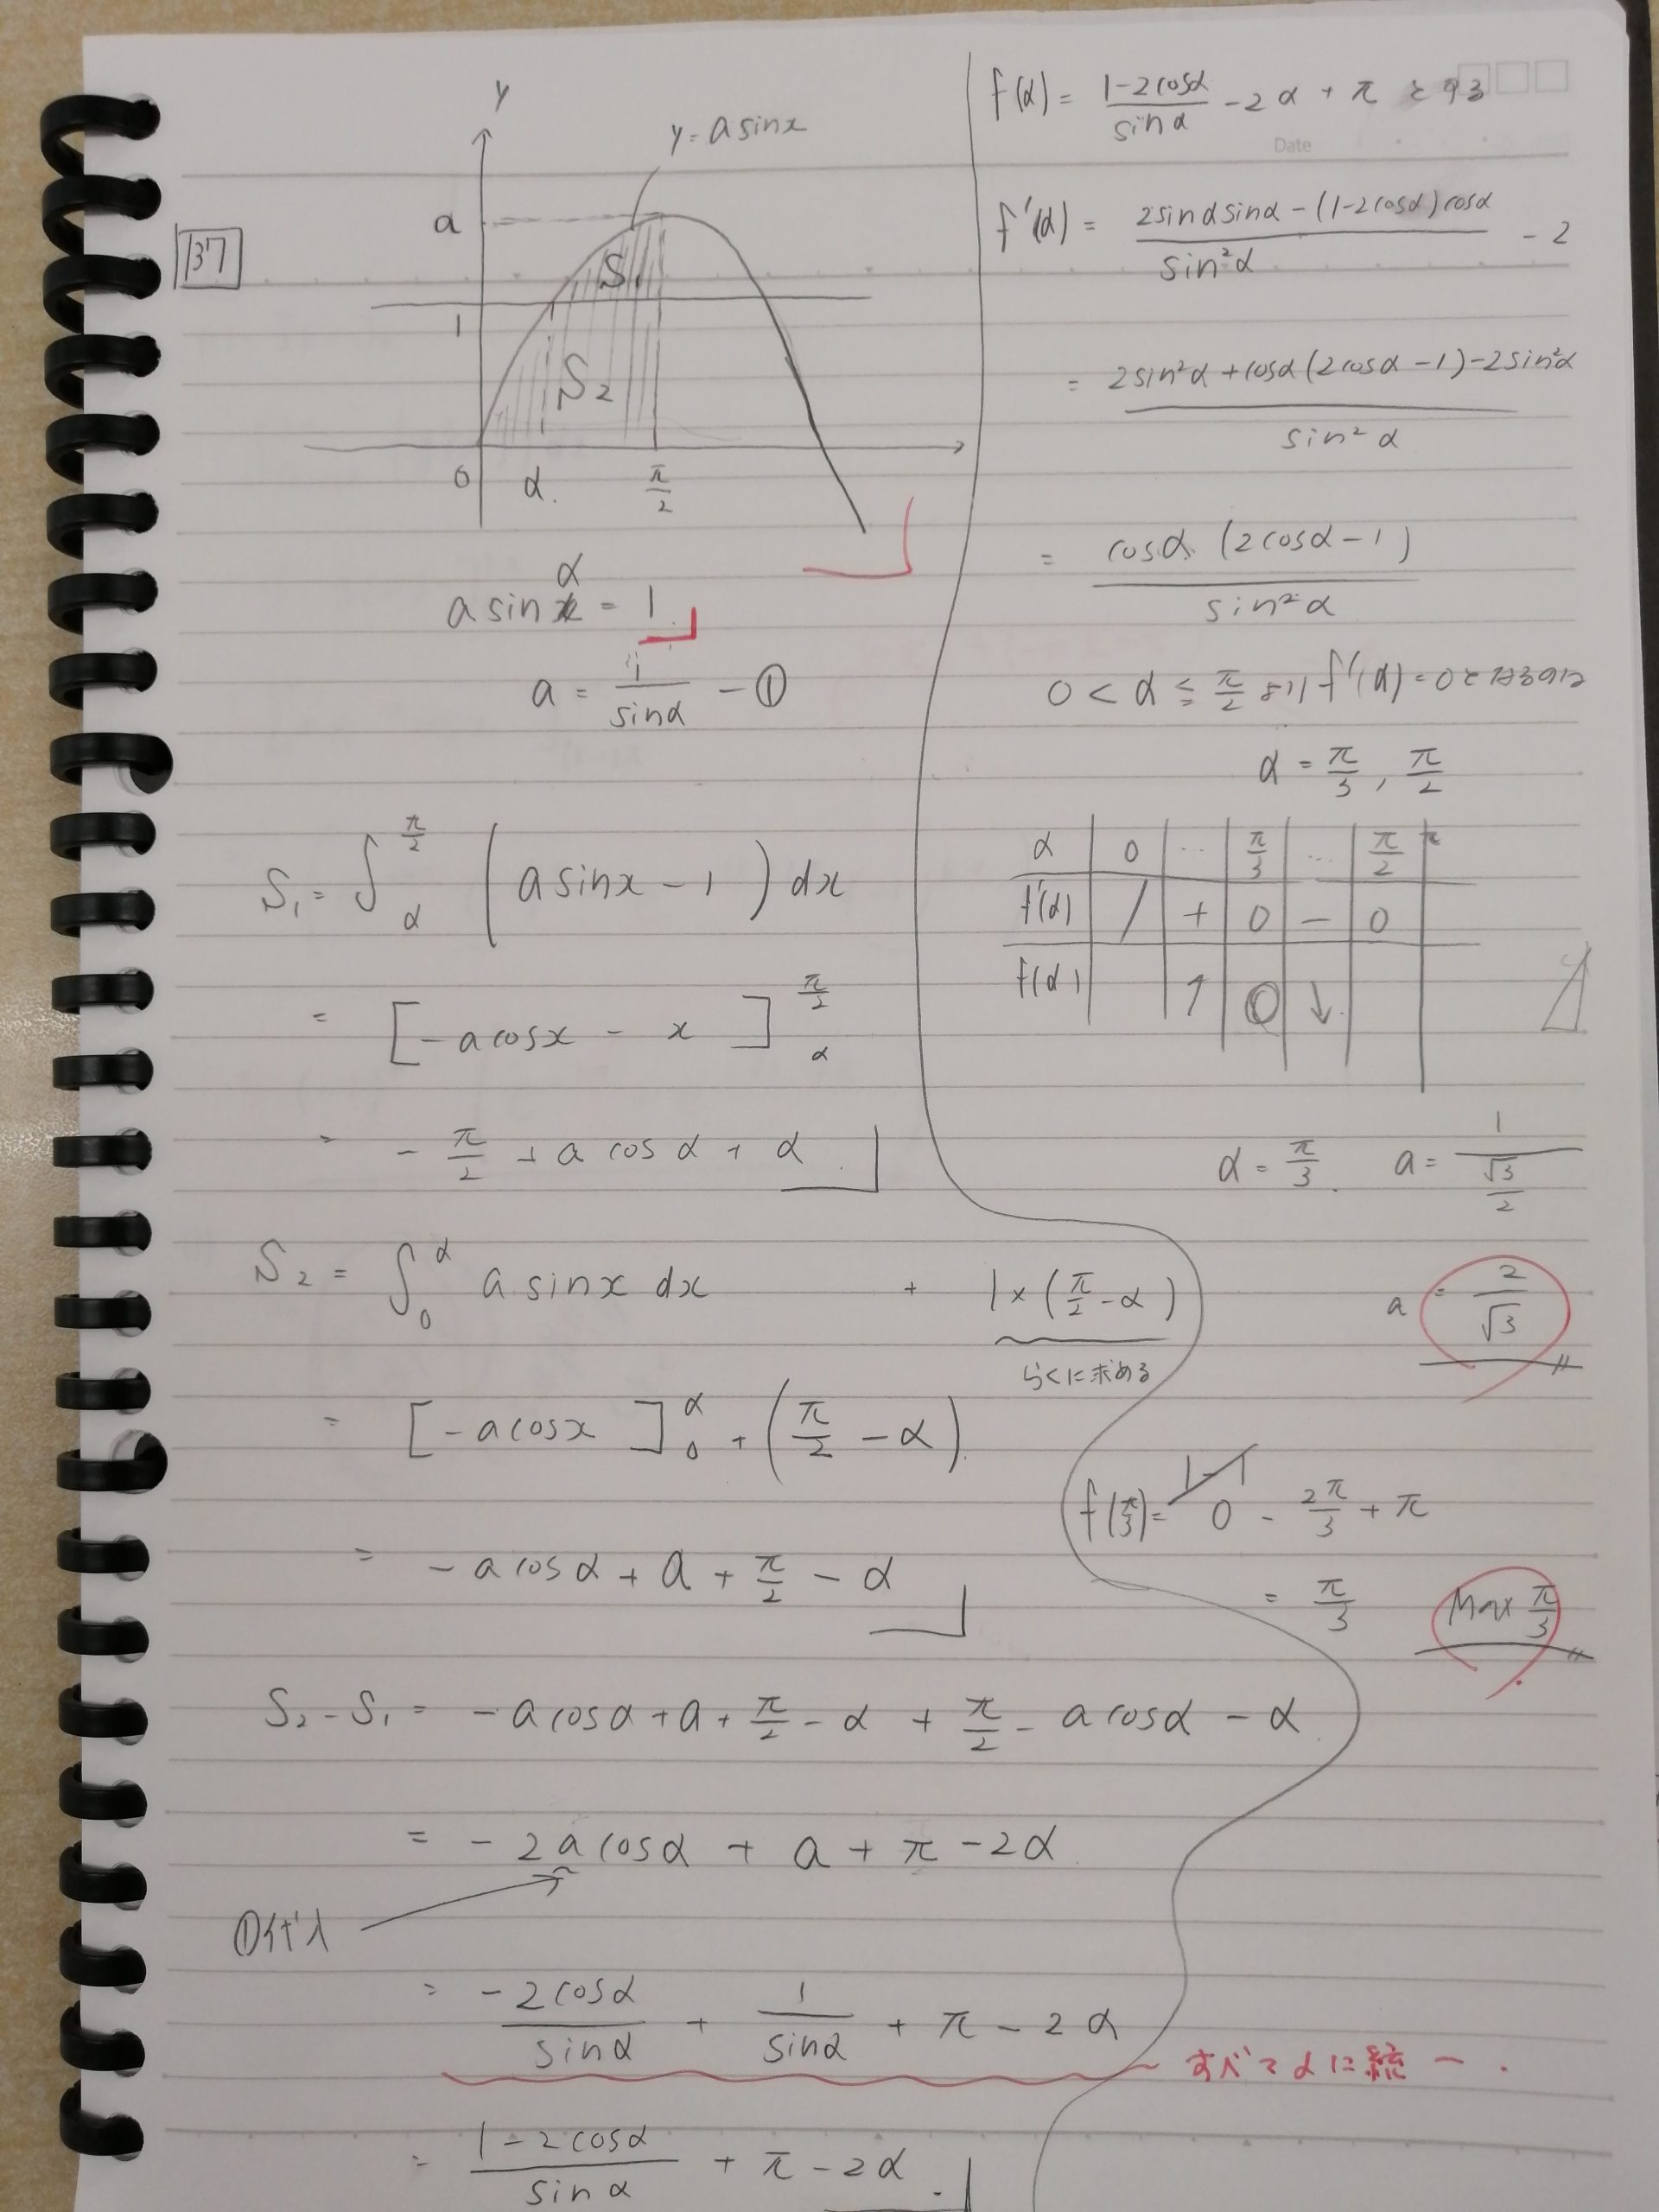 137
y
y = a sin x
a
S₁
1
S₂
0 α π/2
a sin α = 1
a = 1/sinα - ①
S₁ = ∫_α^{π/2} ( a sin x - 1 ) dx
= [ -a cos x - x ]_α^{π/2}
= - π/2 + a cos α + α
S₂ = ∫_0^α a sin x dx + 1 × (π/2 - α)
らくに求める
= [ -a cos x ]_0^α + (π/2 - α)
= -a cos α + a + π/2 - α
S₂ - S₁ = -a cos α + a + π/2 - α + π/2 - a cos α - α
= -2a cos α + a + π - 2α
①代入
= -2cosα/sinα + 1/sinα + π - 2α
すべてαに統一.
= (1-2cosα)/sinα + π - 2α
Date
f(α) = (1-2cosα)/sinα - 2α + π とする
f'(α) = (2sinα sinα - (1-2cosα)cosα)/sin²α - 2
= (2sin²α + cosα(2cosα - 1) - 2sin²α)/sin²α
= cosα (2cosα - 1)/sin²α
0 < α ≦ π/2 より f'(α) = 0 となるのは
α = π/3 , π/2
α 0 … π/3 … π/2
f'(α) / + 0 - 0
f(α) ↑ 0 ↓
α = π/3 . a = 1/(√3/2)
a = 2/√3
f(π/3) = 0 - 2π/3 + π
= π/3 Max π/3